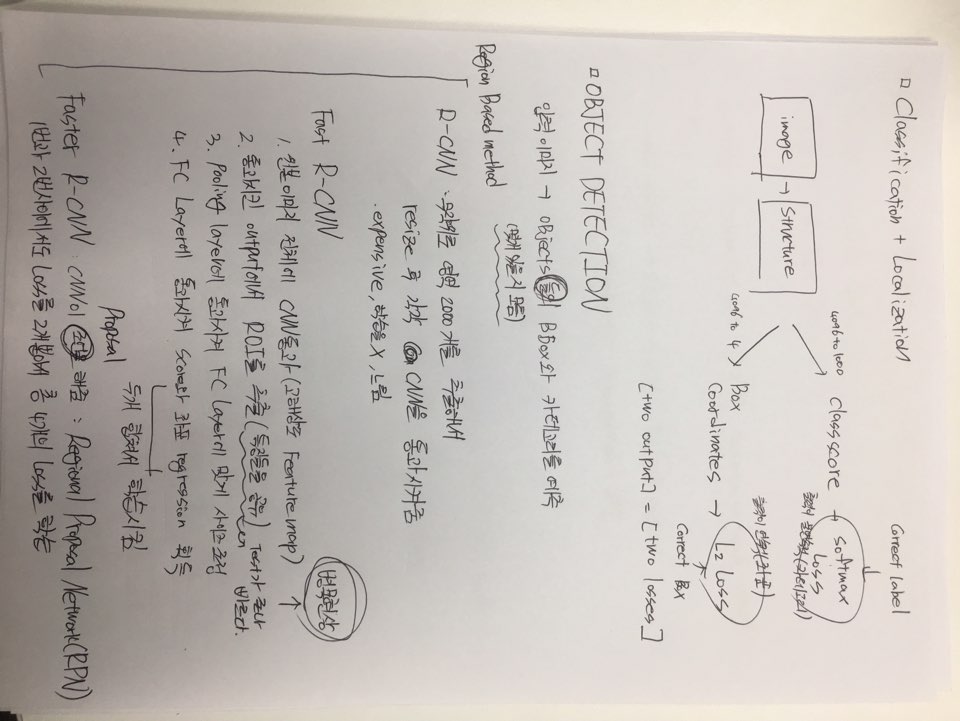 □ Classification + Localization
Correct label
4096 to 1000
class score → softmax
Loss
출력이 불연속적(카테고리)
image → structure
출력이 연속(좌표)
4096 to 4
Box
Coordinates → L2 Loss
Correct Box
[two output] = [two losses]
□ OBJECT DETECTION
입력 이미지 → objects 들의 BBox와 카테고리를 예측
(몇개 있을지 모름)
Region Based method
R-CNN : 무작위로 영역 2000개를 추출해서
resize 후 각각 CNN을 통과시켜줌
.expensive, 학습율X, 느림
Fast R-CNN
병목현상
1. 원본이미지 전체에 CNN통과 (고해상도 Feature map)
2. 통과시킨 output에서 ROI를 추출 (특징들을 공유) Test가
빠르다.
3. Pooling layer에 통과시켜 FC Layer에 맞게 사이즈 조정
4. FC Layer에 통과시켜 Score와 좌표 regression 획득
두개 합쳐서 학습시킴
Proposal
Faster R-CNN : CNN이 해줌 : Regional Proposal Network(RPN)
1번과 2번사이에서도 Loss를 2개뽑아서 총 4개의 Loss를 학습